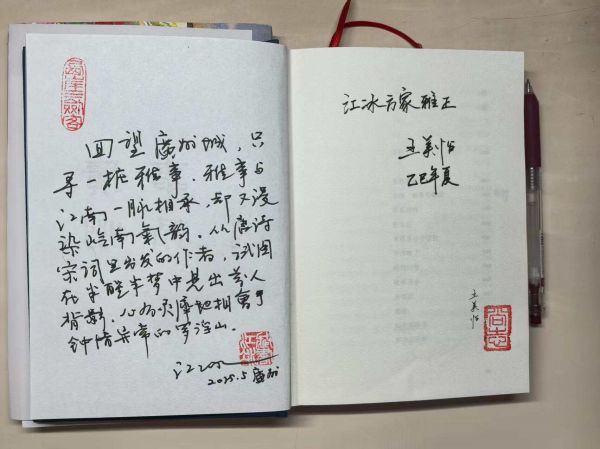 回望廣州城，只
寻一桩雅事。雅事与
江南一脉相承，却又浸
染岭南氣韵。从唐诗
宋词里出发的作者，试图
在半醒半梦中晃出美人
背影。心有灵犀地相會了
钟情异常的罗浮山。
江冰
2025.5 廣州
江冰方家雅正
王美怡
乙巳年夏
王美怡